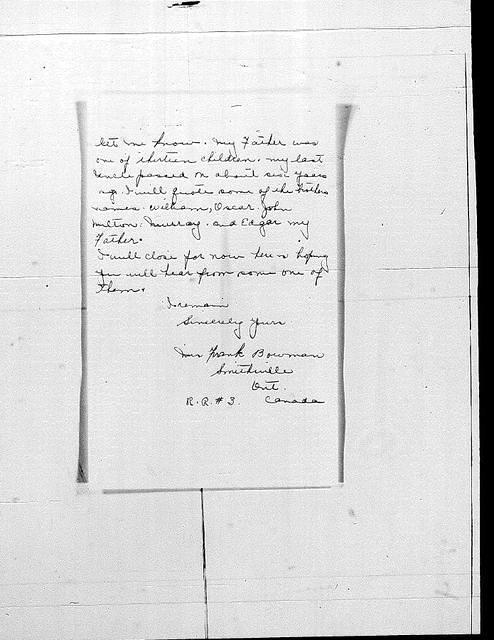 let me know. My Father was
one of thirteen children. my last
Uncle passed on about six years
ago. I will quote some of the Brothers
names. William, Oscar, John
Milton, Murray. and Edgar my
Father.
I will close for now here's hoping
you will hear from some one of
them.
I remain
Sincerely Yours
Mrs Frank Bowman
Smithville
Ont.
R.R. # 3. Canada